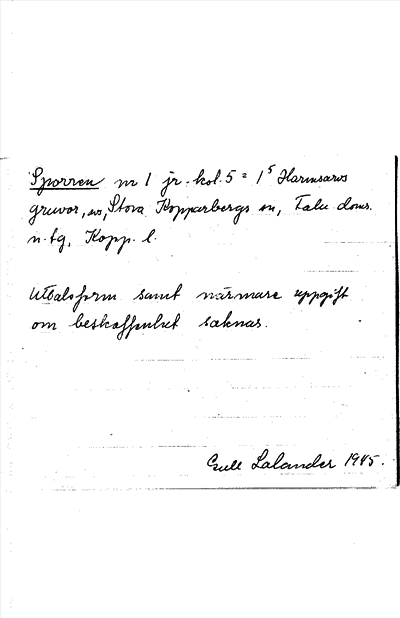 Sporren nr 1 jr. kol. 5 = 1⁵ Harmsarvs
gruvor, Stora Kopparbergs sn, Falu doms.
n. tg, Kopp. l.
Uttalsform samt närmare uppgift
om beskaffenhet saknas.
Gull Lalander 1945.